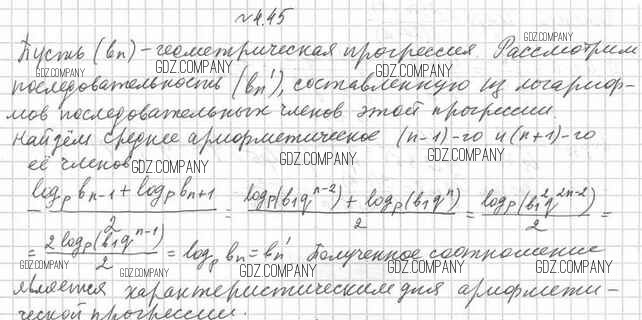 №4.45
Пусть (bₙ) – геометрическая прогрессия. Рассмотрим
последовательность (bₙ'), составленную из логариф-
мов последовательных членов этой прогрессии.
Найдём среднее арифметическое (n-1)-го и (n+1)-го
её членов
(log_p b_{n-1} + log_p b_{n+1})/2 = (log_p(b₁q^{n-2}) + log_p(b₁q^n))/2 = log_p(b₁²q^{2n-2})/2 =
= 2 log_p(b₁q^{n-1})/2 = log_p bₙ = bₙ' Полученное соотношение
является характеристическим для арифмети-
ческой прогрессии.
GDZ.COMPANY
GDZ.COMPANY
GDZ.COMPANY
GDZ.COMPANY
GDZ.COMPANY
GDZ.COMPANY
GDZ.COMPANY
GDZ.COMPANY
GDZ.COMPANY
GDZ.COMPANY
GDZ.COMPANY
GDZ.COMPANY
GDZ.COMPANY
GDZ.COMPANY